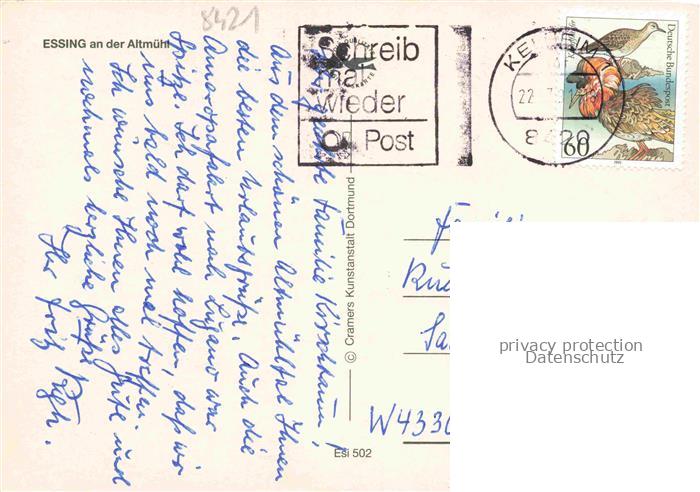 8421
ESSING an der Altmühl
Schreib
mal
wieder
Post
KELHEIM
22.
8420
Deutsche Bundespost
60
Sehr geehrte Familie Kirschbaum,
Aus dem schönen Altmühltal Ihnen
die besten Urlaubsgrüße. Auch die
nach Lugano war
Spitze. Ich darf wohl hoffen, daß wir
uns bald noch mal treffen.
Ich wünsche Ihnen alles Gute und
nochmals herzliche Grüße
Ihr Fritz
© Cramers Kunstanstalt Dortmund
Esi 502
W4330
privacy protection
Datenschutz